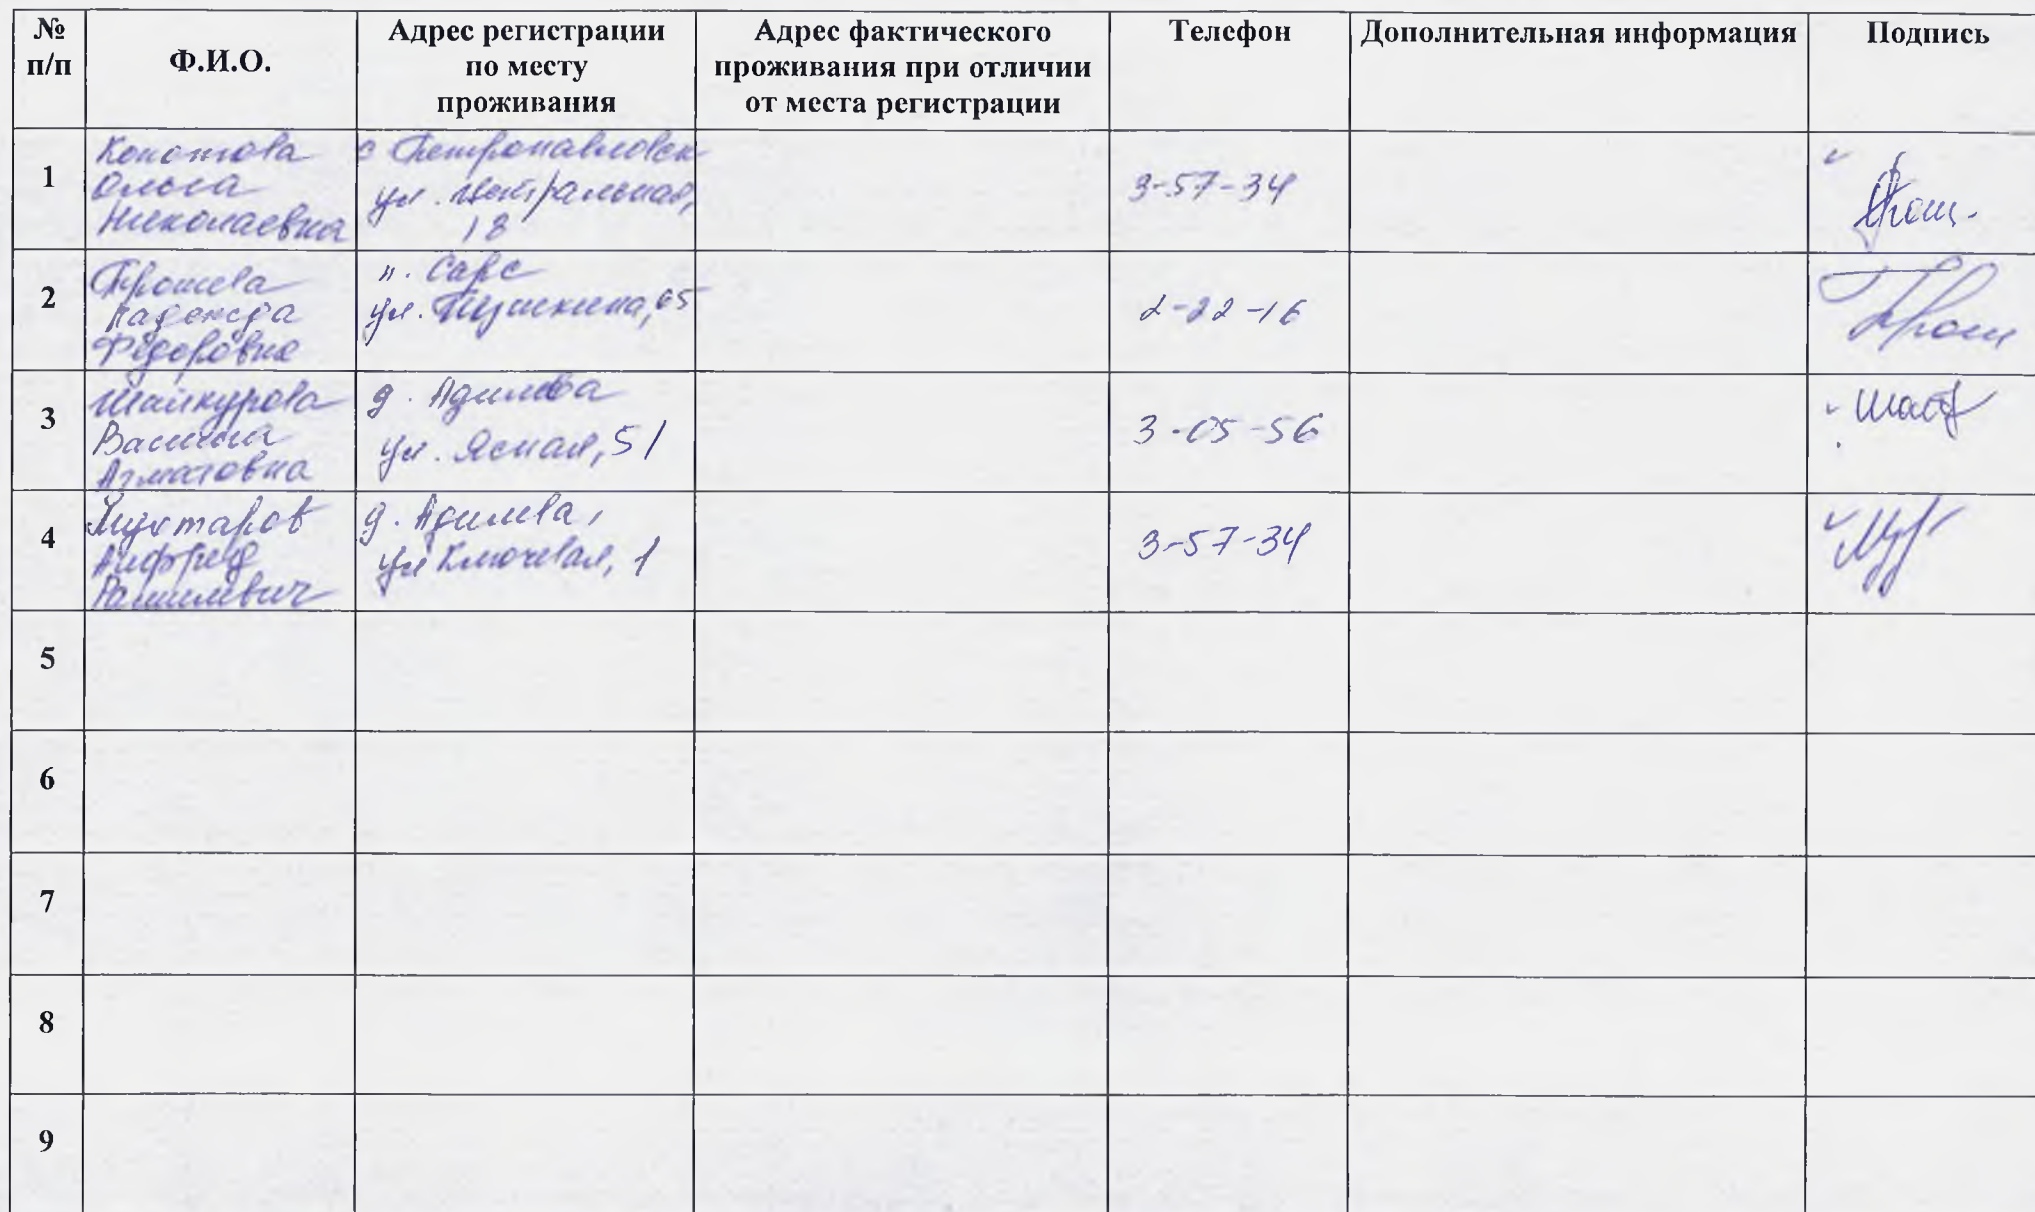 № п/п
Ф.И.О.
Адрес регистрации по месту проживания
Адрес фактического проживания при отличии от места регистрации
Телефон
Дополнительная информация
Подпись
1
Ольга
Николаевна
с Петропавловск
ул. Центральная,
18
3-57-34
2
Трошева
Надежда
Фёдоровна
п. Сарс
ул. Пушкина, 65
2-22-16
3
Шайкурова
Василя
д. Адилева
ул. Ясная, 51
3-05-56
4
Мухтаров
Альфред
д. Адилева,
ул Ключевая, 1
3-57-34
5
6
7
8
9